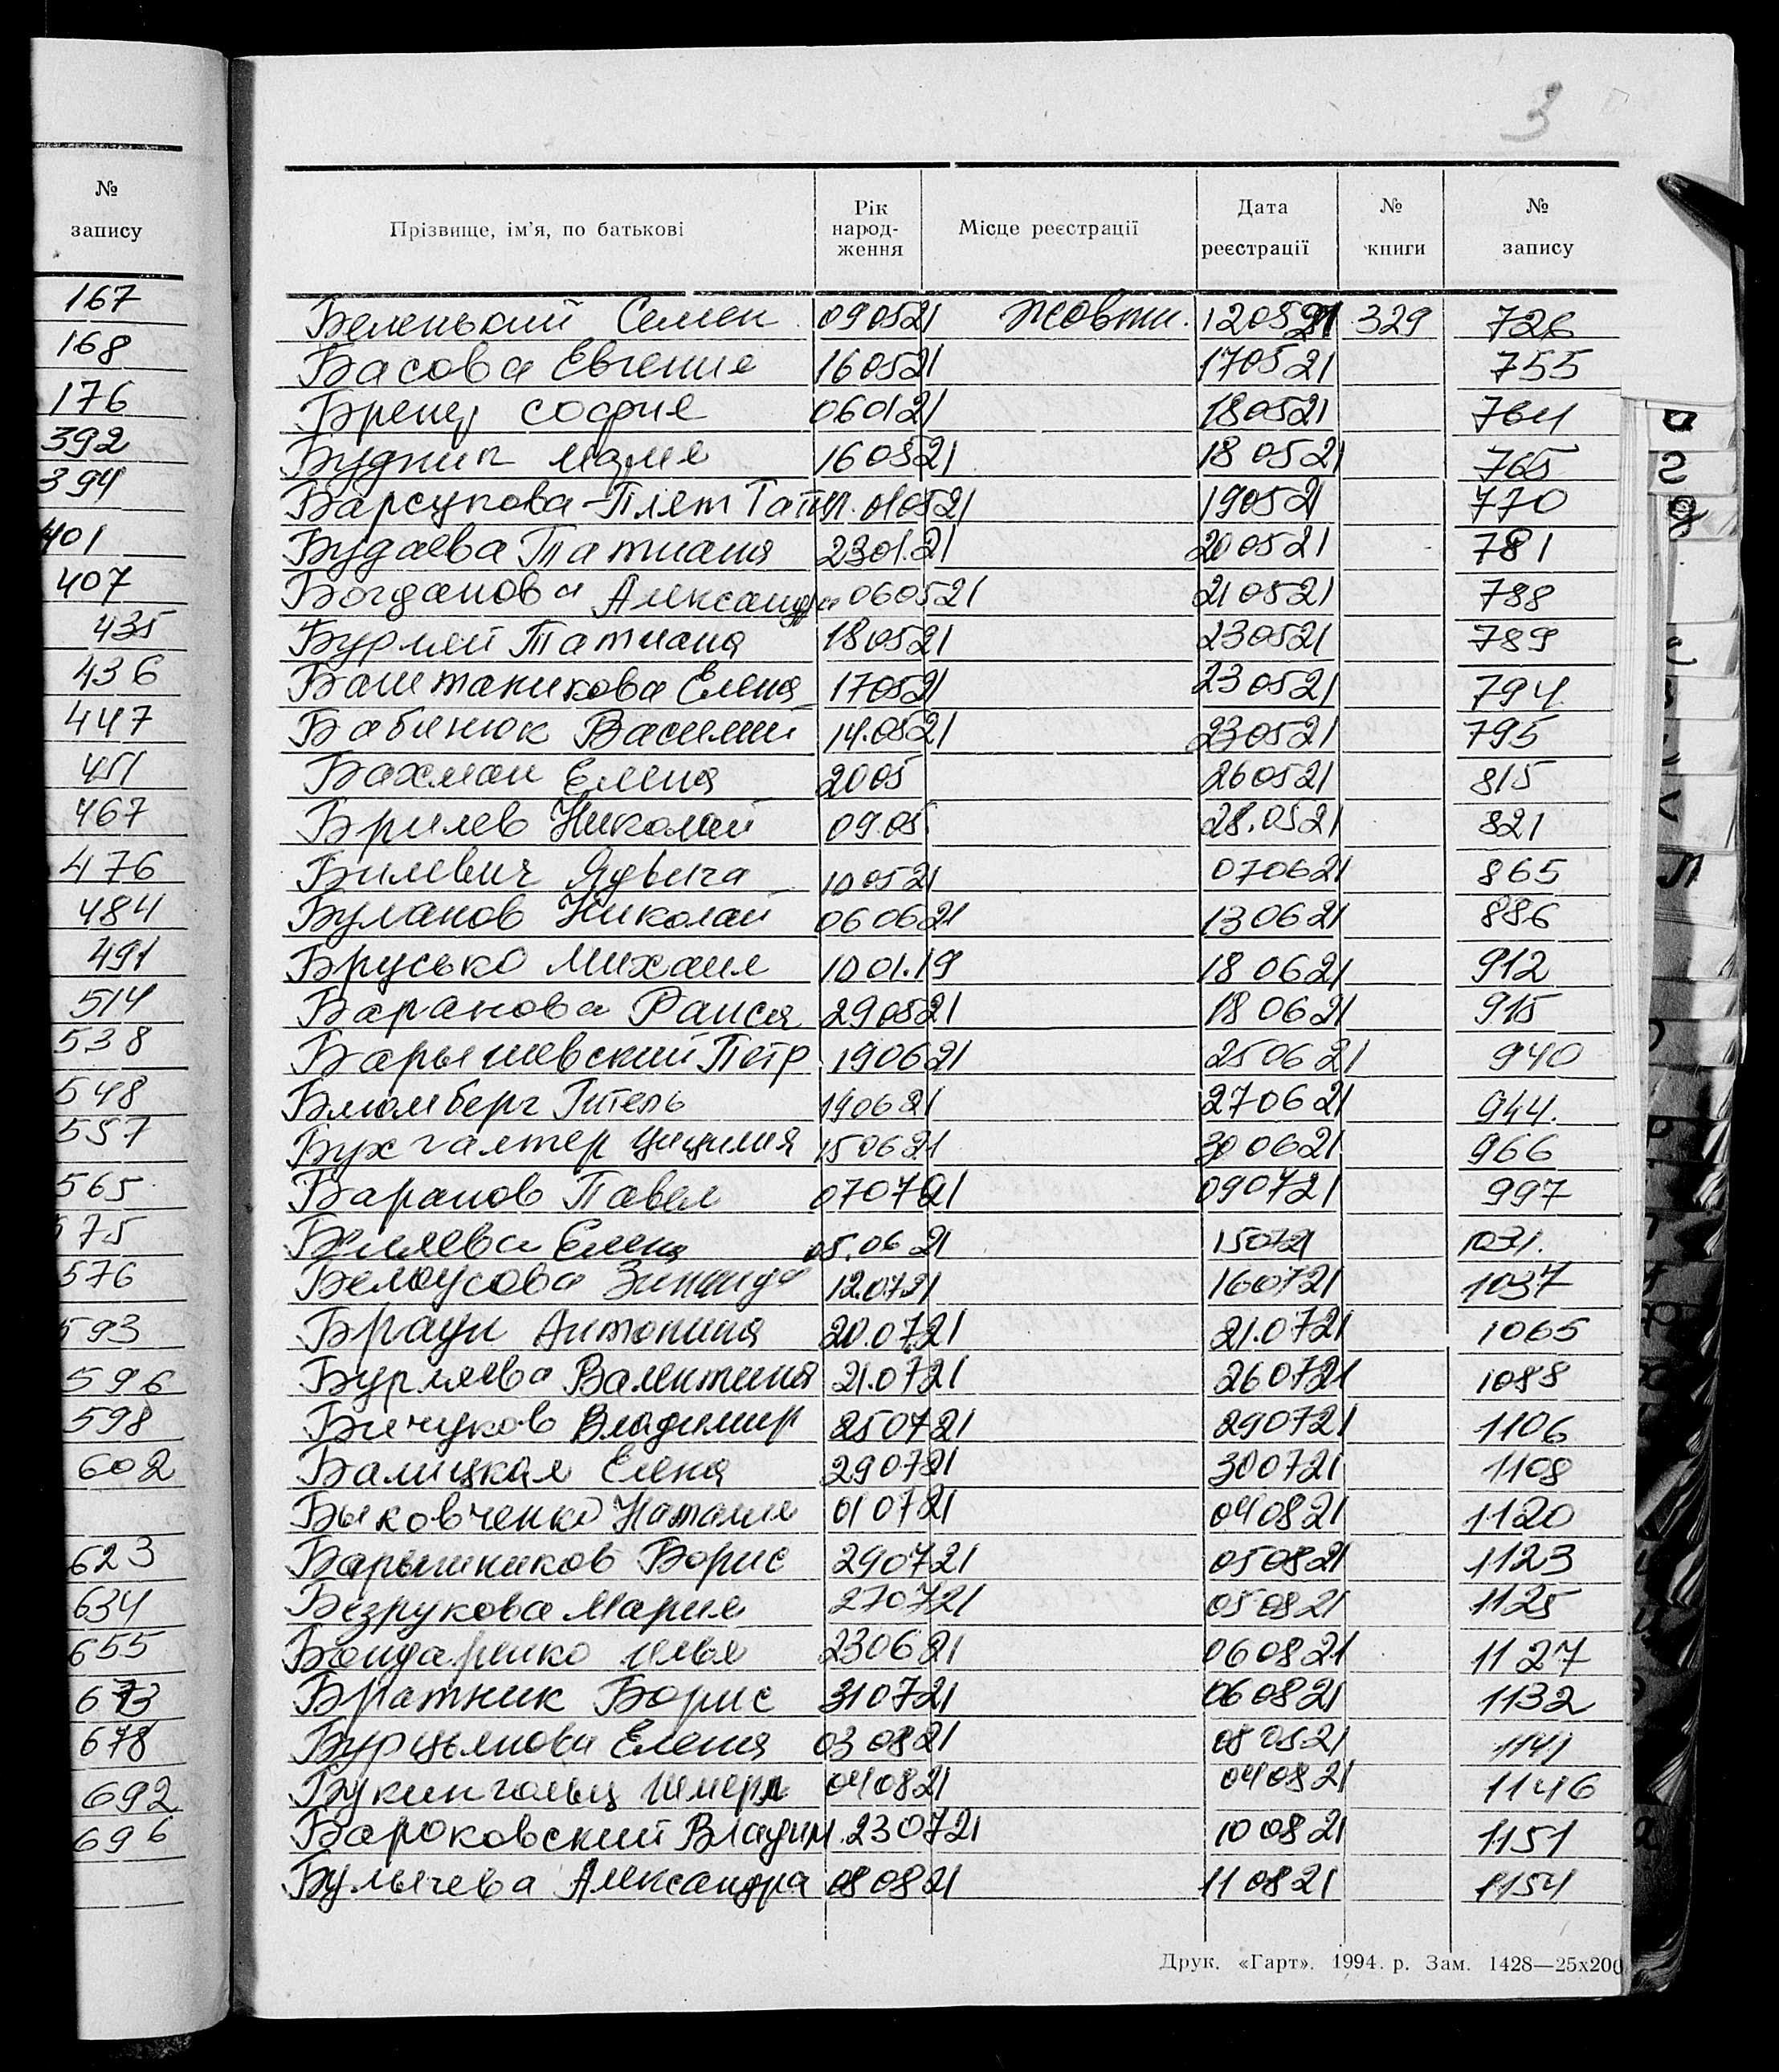 3
№
запису
167
168
176
392
394
401
407
435
436
447
451
467
476
484
491
514
538
548
557
565
575
576
593
596
598
602
623
634
655
673
678
692
696
Прізвище, ім'я, по батькові
Рік народ-ження
Місце реєстрації
Дата реєстрації
№ книги
№ запису
Беленький Семен 090521 Жовтн. 120521 329 726
Басова Евгения 160521 170521 755
Бренц София 060121 180521 764
Будник Мария 160521 180521 765
Барсукова-Плет Татьян. 010521 190521 770
Будаева Татиана 2301.21 200521 781
Богданова Александра 060521 210521 788
Бурлей Татиана 180521 230521 789
Баштаникова Елена 170521 230521 794
Бабинюк Василий 14.0521 230521 795
Бахман Елена 2005 260521 815
Брилев Николай 09.05 28.0521 821
Билевич Ядвига 100521 070621 865
Буланов Николай 060621 130621 886
Брусько Михаил 1001.19 180621 912
Баранова Раиса 290521 180621 915
Барышевский Петр 190621 250621 940
Блюмберг Гитель 190621 270621 944.
Бухгалтер Цицилия 150621 300621 966
Баранов Павел 070721 090721 997
Беляева Елена 05.0621 150721 1031.
Белоусова Зинаида 12.07.21 160721 1037
Браун Антонина 20.0721 21.0721 1065
Бурляева Валентина 21.0721 260721 1088
Бичуков Владимир 250721 290721 1106
Балицкая Елена 290721 300721 1108
Быковченко Наталия 010721 040821 1120
Барышников Борис 290721 050821 1123
Безрукова Мария 270721 050821 1125
Бондаренко Илья 230621 060821 1127
Братник Борис 310721 060821 1132
Бурцьянова Елена 030821 080821 1141
Букингольц Шмерл 040821 040821 1146
Бароковский Владим. 230721 100821 1151
Булычева Александра 080821 110821 1154
Друк. «Гарт». 1994. р. Зам. 1428—25х200